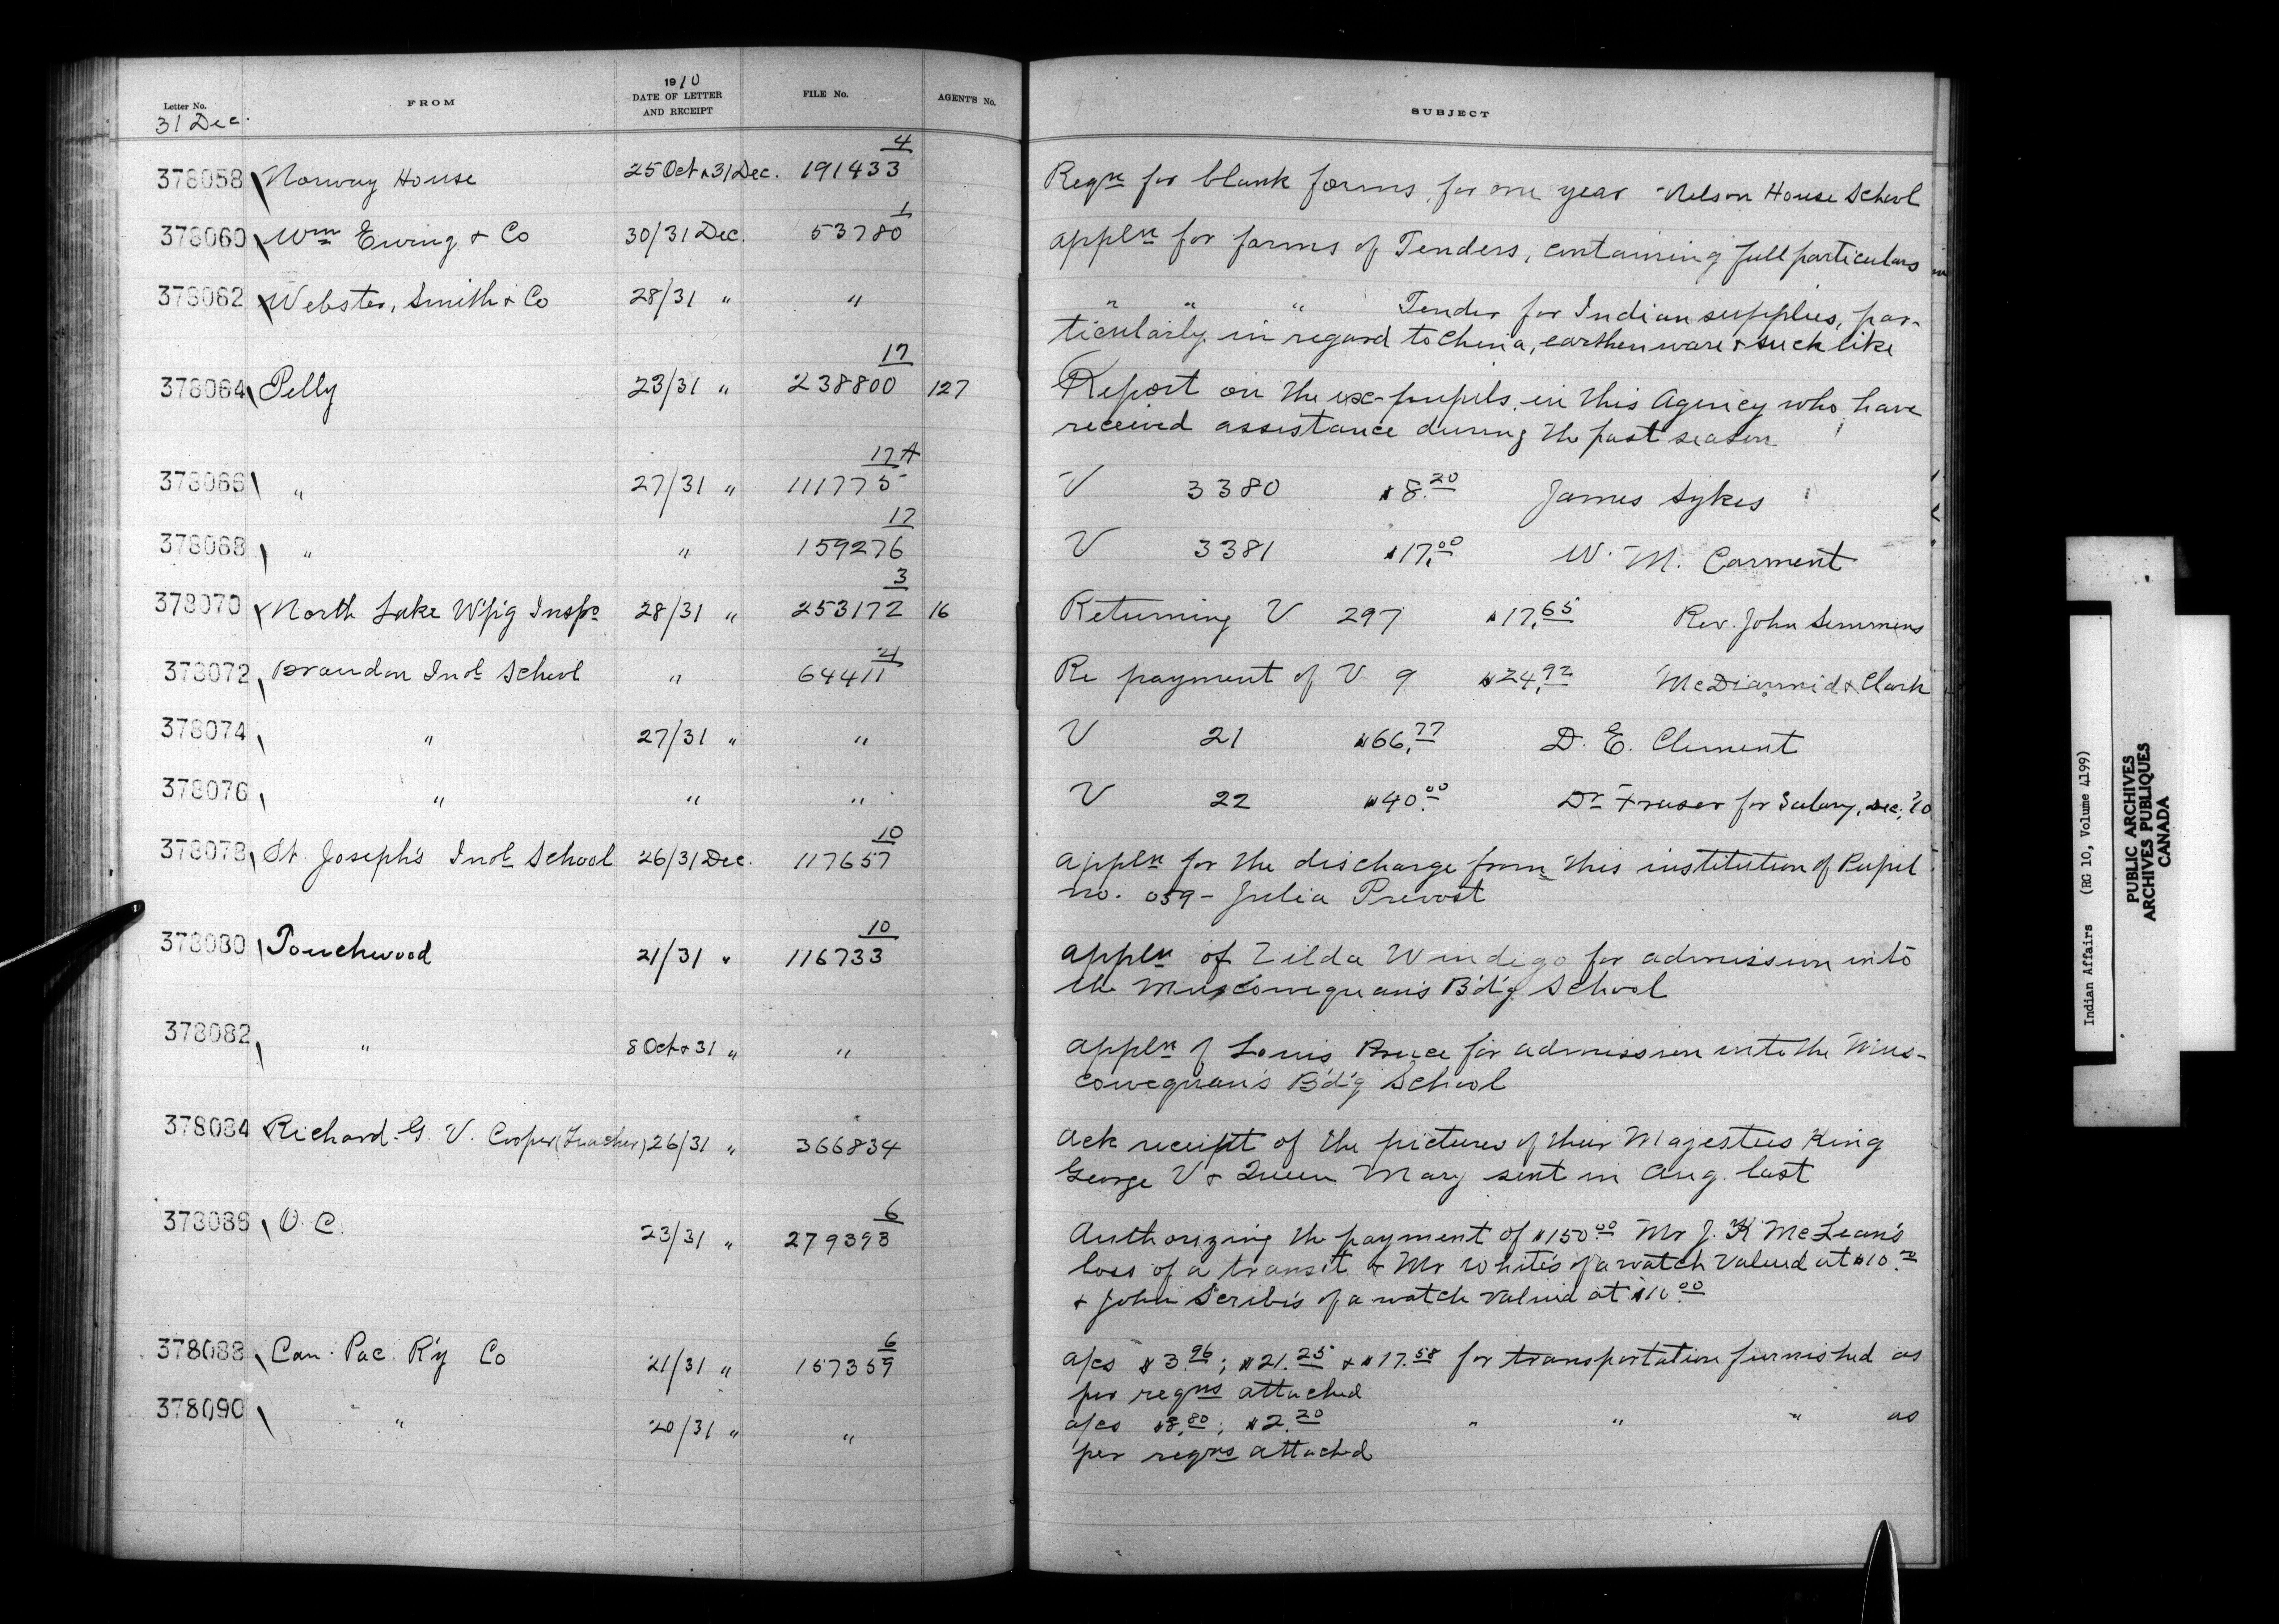 Letter No. FROM 1910 DATE OF LETTER AND RECEIPT FILE No. AGENT'S No. SUBJECT
31 Dec.
378058 Norway House 25 Oct & 31 Dec. 191433 4 Reqn for blank forms for one year - Nelson House School
378060 Wm Ewing & Co 30/31 Dec. 53780 1 Appln for forms of Tenders, containing full particulars
378062 Webster, Smith & Co 28/31 " " " " " Tender for Indian supplies, par-
ticularly in regard to China, earthenware & such like
378064 Pelly 23/31 " 238800 17 127 Report on the ex-pupils in this Agency who have
received assistance during the past season
378066 " 27/31 " 111775 17A V 3380 $8.20 James Sykes
378068 " " 159276 17 V 3381 $17.00 W. M. Carment
378070 North Lake W'pig Inspc 28/31 " 253172 3 16 Returning V 297 $17.65 Rev. John Semmens
378072 Brandon Indl School " 64411 Re payment of V 9 $24.92 McDiarmid & Clark
378074 " 27/31 " " V 21 $66.77 D. E. Clement
378076 " " " V 22 $40.00 Dr Fraser for Salary, Dec. '10
378078 St. Joseph's Indl School 26/31 Dec. 117657 10 Appln for the discharge from this institution of Pupil
no. 059 - Julia Prevost
378080 Touchwood 21/31 " 116733 10 Appln of Zilda Windigo for admission into
the Muscowequan's B'd'g School
378082 " 8 Oct & 31 " " Appln of Louis Bruce for admission into the Mus-
cowequan's B'd'g School
378084 Richard G. V. Cooper (Teacher) 26/31 " 366834 Ack receipt of the pictures of their Majesties King
George V & Queen Mary sent in Aug. last
378086 O. C. 23/31 " 279393 6 Authorizing the payment of $150.00 Mr J. K McLean's
loss of a transit & Mr White's of a watch valued at $10.00
& John Scribe's of a watch valued at $10.00
378088 Can. Pac. R'y Co 21/31 " 157359 6 a/cs $3.96; $21.25 & $17.58 for transportation furnished as
per reqns attached
378090 " 20/31 " " a/cs $8.80; $2.20 " " " as
per reqns attached
Indian Affairs (RG 10, Volume 4199)
PUBLIC ARCHIVES
ARCHIVES PUBLIQUES
CANADA